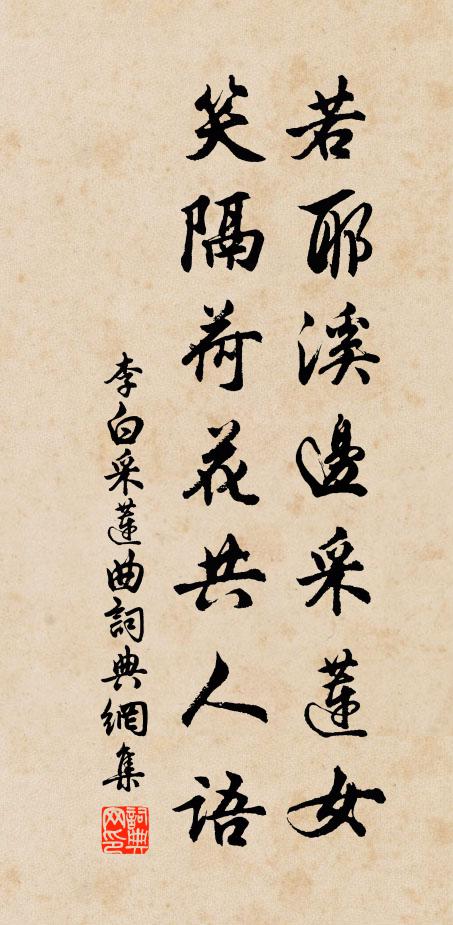 若耶溪邊采蓮女
笑隔荷花共人語
李白采蓮曲詞典網集
詞典
网印